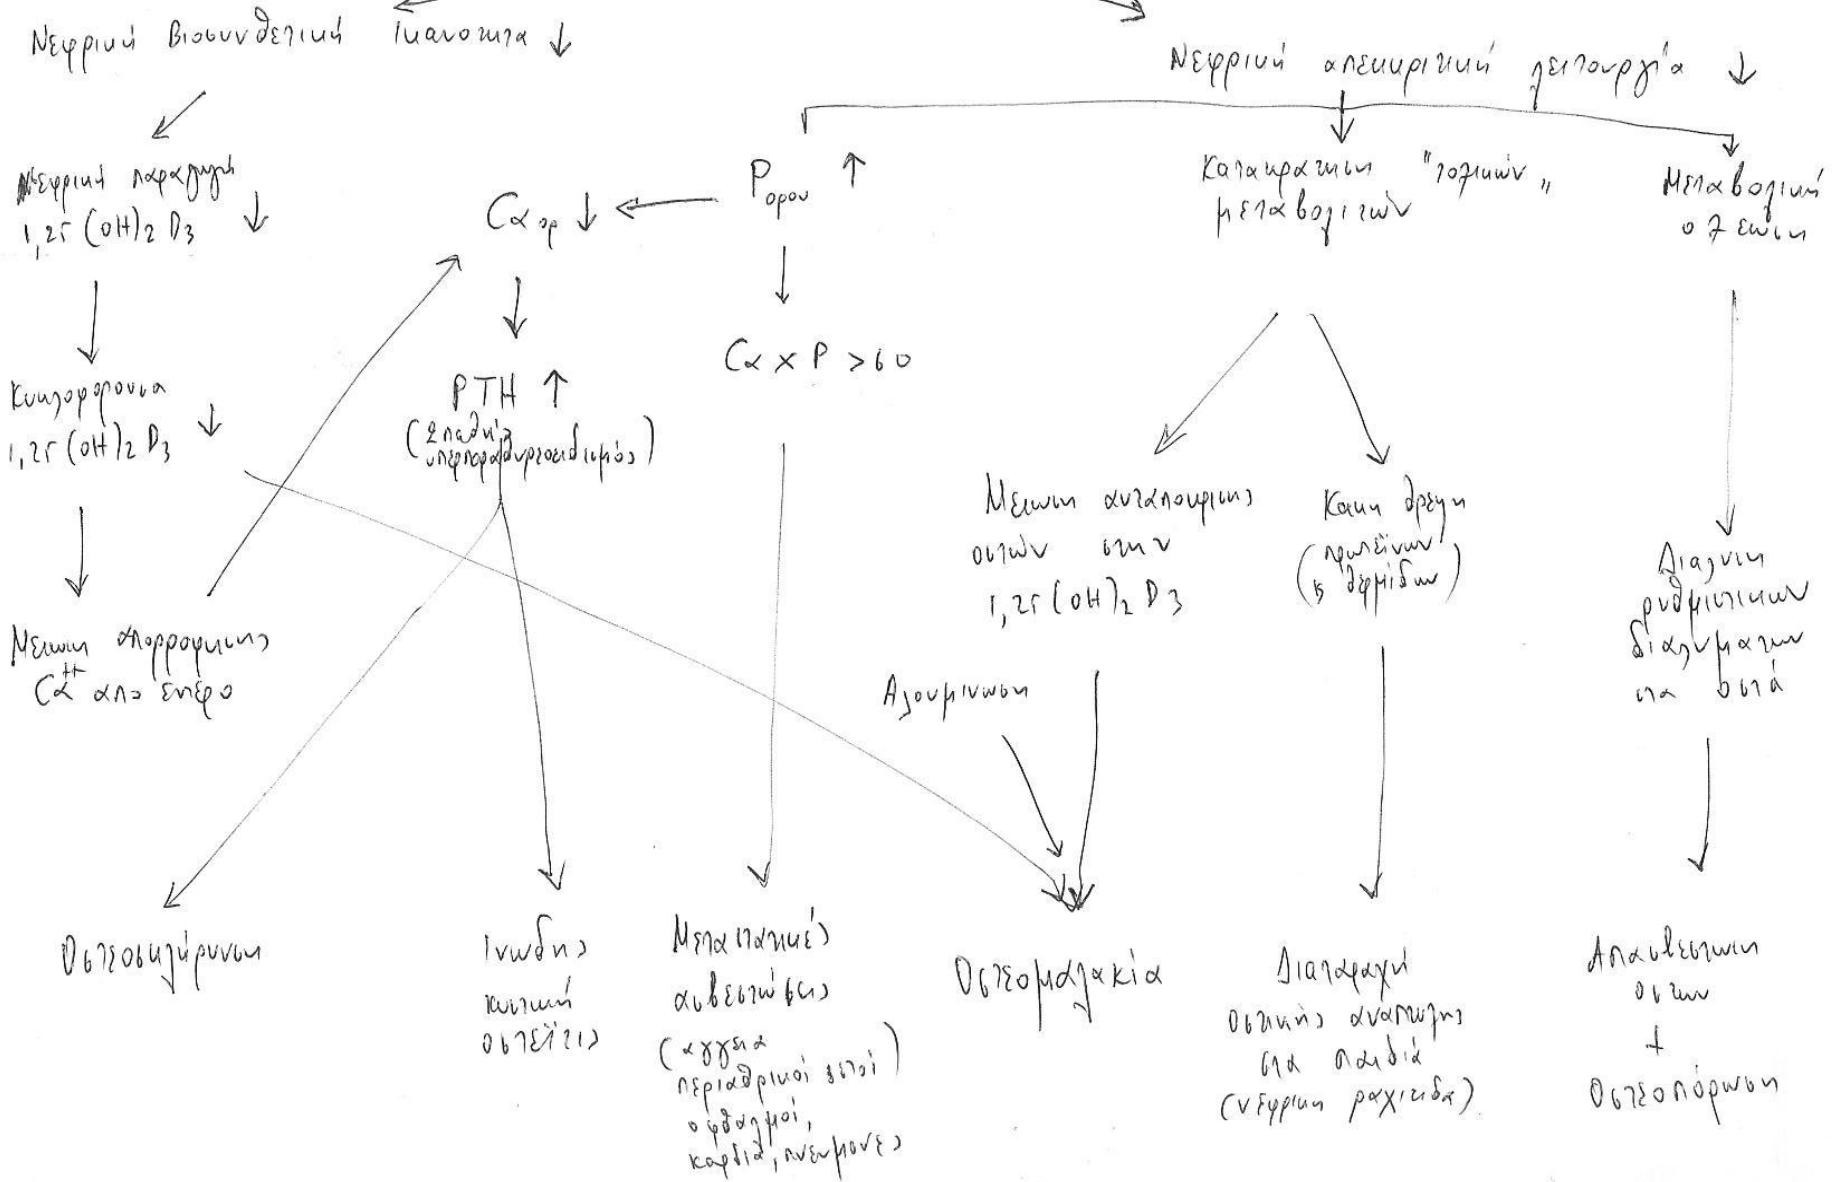 Νεφρική Βιοσυνθετική Ικανότητα ↓
Νεφρική απεκκριτική λειτουργία ↓
Νεφρική παραγωγή
1,25 (OH)2 D3 ↓
Ca ορ ↓
P ορου ↑
Κατακράτηση "τοξικών"
μεταβολιτών
Μεταβολική
οξέωση
Κυκλοφορουσα
1,25 (OH)2 D3 ↓
PTH ↑
(2παθής
υπερπαραθυρεοειδισμός)
Ca x P > 60
Μειωση ανταποκρισης
οστών στην
1,25 (OH)2 D3
Κακη θρεψη
(πρωτεϊνων
& θερμίδων)
Διαλυση
ρυθμιστικων
διαλυματων
στα οστά
Μειωση απορροφησης
Ca++ απο έντερο
Αλουμινωση
Οστεοσκλήρυνση
Ινωδης
κυστική
οστεΐτις
Μεταστατικές
ασβεστώσεις
(αγγεια
περιαθρικοί ιστοί)
οφθαλμοί,
καρδιά, πνευμονες
Οστεομαλακία
Διαταραχή
οστικής αναπτυξης
στα παιδιά
(νεφρικη ραχιτιδα)
Απασβεστωση
οστων
+
Οστεοπόρωση